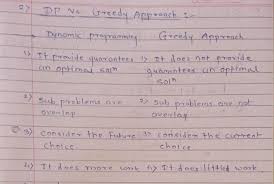 2) DP Vs Greedy Approach :-
Dynamic programming Greedy Approach
1) It provide guarantees 1) It does not provide
an optimal solⁿ guarantees an optimal
solⁿ
2) Sub problems are 2) Sub problems are not
overlap overlap
3) Consider the future 3) consider the current
choice choice
4) It does more work 4) It does little work